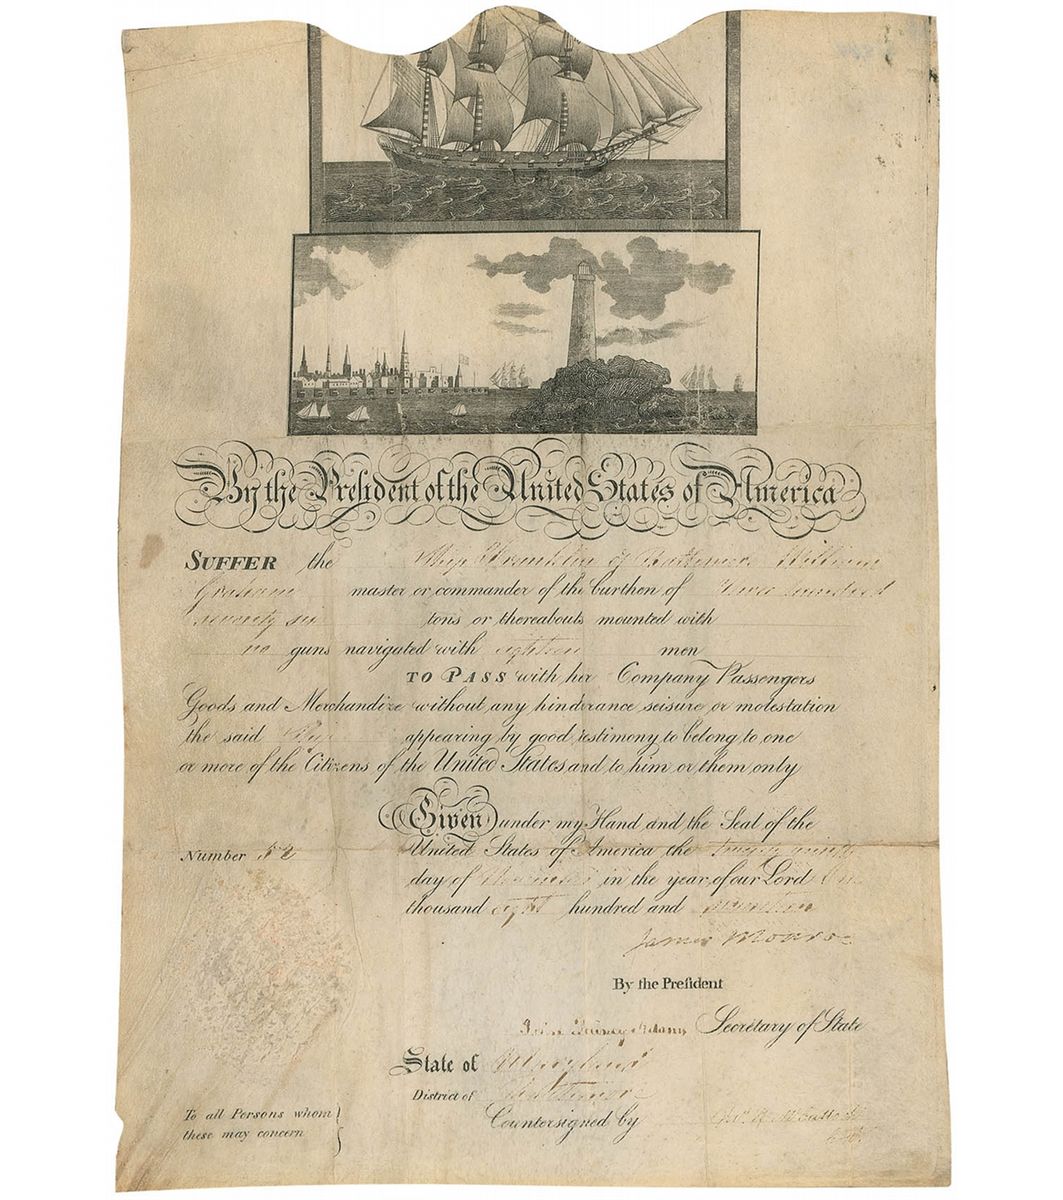 By the President of the United States of America
SUFFER the Ship Franklin of Baltimore William
Graham master or commander of the burthen of Three hundred
seventy six tons or thereabouts mounted with
no guns navigated with eighteen men
TO PASS with her Company Passengers
Goods and Merchandize without any hinderance seisure or molestation
the said Ship appearing by good testimony to belong to one
or more of the Citizens of the United States and to him or them only
Given under my Hand and the Seal of the
Number 52
United States of America the twenty ninth
day of in the year of our Lord One
thousand eight hundred and seventeen
James Monroe
By the President
John Quincy Adams Secretary of State
State of Maryland
District of Baltimore
To all Persons whom
these may concern
Countersigned by